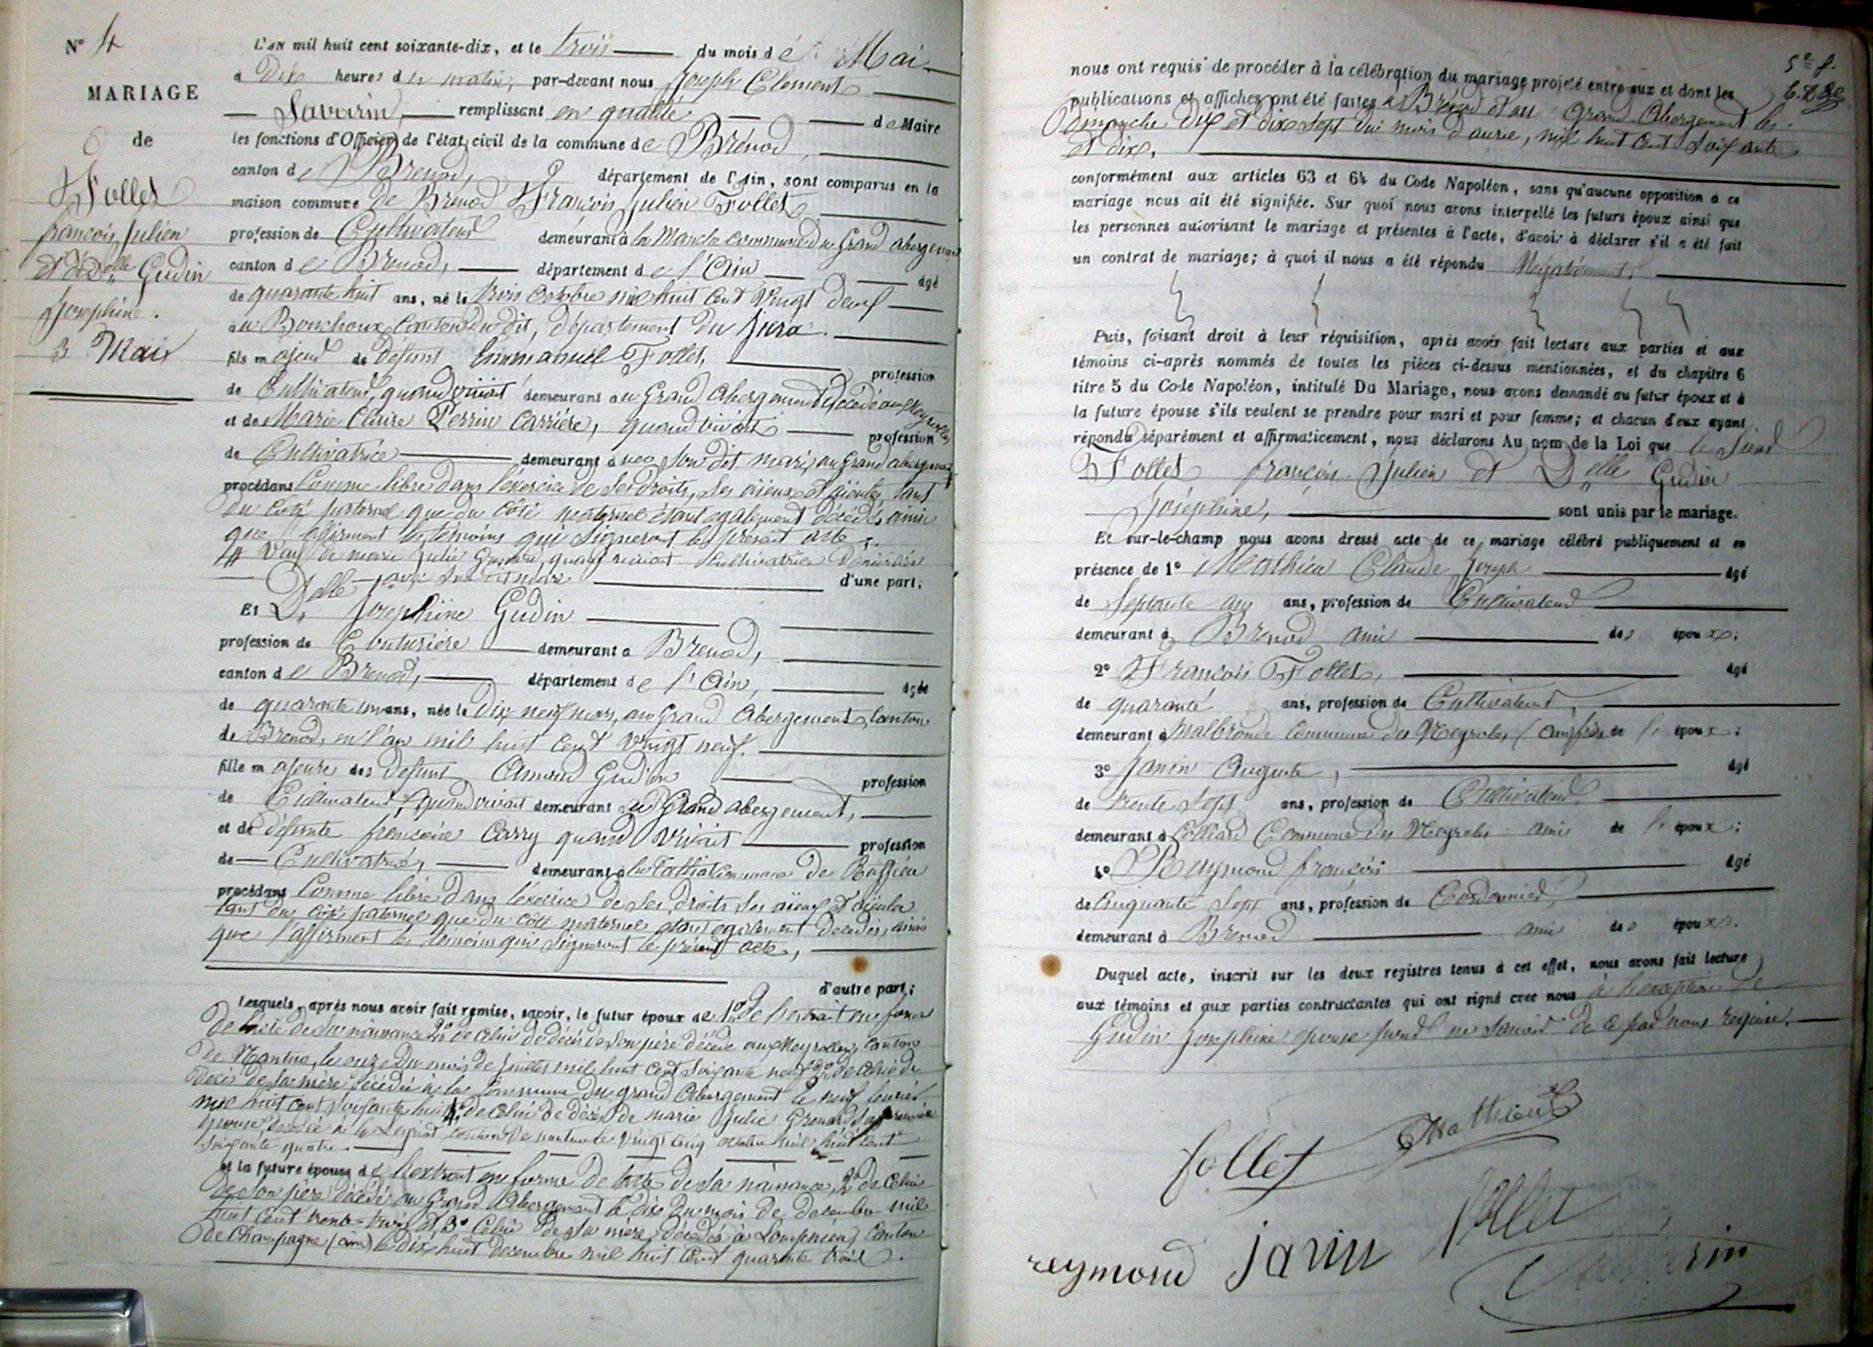 N° 4
MARIAGE
de
Follet
françois Julien
et Delle Gudin
Josephine.
3 Mai
L'an mil huit cent soixante-dix, et le trois du mois de Mai
à Dix heures du matin, par-devant nous Joseph Clement
Savarin, remplissant en qualité de Maire
les fonctions d'Officier de l'état civil de la commune de Brénod,
canton de Brenod, département de l'Ain, sont comparus en la
maison commune de Brenod François Julien Follet
profession de Cultivateur demeurant à la Manche commune du Grand abergement
canton de Brenod, département de l'Ain âgé
de quarante huit ans, né le trois octobre mil huit cent vingt deux
au Bouchoux, Canton du dit, département du Jura.
fils majeur de défunt Emmanuel Follet, profession
de Cultivateur, quand vivait demeurant au Grand abergement Décédé aux Neyrolles
et de Marie Claire Perrin Carrière, quand vivait profession
de Cultivatrice demeurant avec son dit mari, au Grand abergement
procédant Comme libre dans l'exercice de ses droits, ses aïeux et aïeules tant
du coté paternel que du coté maternel étant egalement décédés, ainsi
que l'affirment les témoins qui signeront le présent acte
Veuf de marie Julie Grenard, quand vivait Cultivatrice Demeurant
avec son dit mari d'une part;
Et Delle Josephine Gudin
profession de Couturière demeurant à Brenod,
canton de Brenod, département de l'Ain, âgée
de quarante un ans, née le Dix neuf mars, au Grand Abergement, Canton
de Brenod, en l'an mil huit cent vingt neuf.
fille majeure des defunt Armand Gudin profession
de Cultivateur, quand vivait demeurant au Grand abergement,
et de défunte françoise Carry quand vivait profession
de Cultivatrice, demeurant à commune de Ruffieu
procédant Comme libre dans l'exercice de ses droits ses aïeux et aïeules
tant du coté paternel que du coté maternel étant egalement décédés, ainsi
que l'affirment les témoins qui signeront le présent acte,
d'autre part;
Lesquels, après nous avoir fait remise, savoir, le futur époux de 1° De l'extrait en forme
de l'acte de sa naissance 2° de celui de décès de son père décédé aux Neyrolles, Canton
de Nantua, le onze du mois de Juillet mil huit cent soixante neuf 3° de celui du
décès de sa mère décédée à la Commune du grand Abergement le neuf fevrier
mil huit cent soixante huit 4° de celui de décès de marie Julie Grenard sa première
épouse décédée à canton de nantua le vingt cinq octobre mil huit cent
soixante quatre.
et la future épouse de l'extrait en forme de l'acte de sa naissance, 2° de celui
de son père décédé au Grand Abergement le dix du mois de decembre mil
huit cent trente-trois et 3° Celui de sa mère décédée à Lompnieu, Canton
de Champagne (ain) le dix huit decembre mil huit cent quarante trois.
5e f.
nous ont requis de procéder à la célébration du mariage projeté entre eux et dont les
publications et affiches ont été faites à Brénod et au Grand Abergement les
Dimanche dix et dix sept du mois d'avril, mil huit cent soixante
et dix,
conformément aux articles 63 et 64 du Code Napoléon, sans qu'aucune opposition à ce
mariage nous ait été signifiée. Sur quoi nous avons interpellé les futurs époux ainsi que
les personnes autorisant le mariage et présentes à l'acte, d'avoir à déclarer s'il a été fait
un contrat de mariage; à quoi il nous a été répondu Négativement,
Puis, faisant droit à leur réquisition, après avoir fait lecture aux parties et aux
témoins ci-après nommés de toutes les pièces ci-dessus mentionnées, et du chapitre 6
titre 5 du Code Napoléon, intitulé Du Mariage, nous avons demandé au futur époux et à
la future épouse s'ils veulent se prendre pour mari et pour femme; et chacun d'eux ayant
répondu séparément et affirmativement, nous déclarons Au nom de la Loi que le Sieur
Follet françois Julien et Delle Gudin
Joséphine, sont unis par le mariage.
Et sur-le-champ nous avons dressé acte de ce mariage célébré publiquement et en
présence de 1° Mathieu Claude Joseph âgé
de Septante ans, profession de Cultivateur
demeurant à Brenod ami des époux;
2° François Follet, âgé
de quarante ans, profession de Cultivateur,
demeurant à Malbronde Commune des Neyrolles (Ain) frère de l'époux;
3° Janin Auguste, âgé
de trente sept ans, profession de Cultivateur,
demeurant à Colliard Commune des Neyrolles ami de l'époux;
4° Raymond françois âgé
de Cinquante sept ans, profession de Cordonnier,
demeurant à Brenod ami des époux.
Duquel acte, inscrit sur les deux registres tenus à cet effet, nous avons fait lecture
aux témoins et aux parties contractantes qui ont signé avec nous à l'exception de
Gudin Josephine epouse pour ne savoir de ce par nous requise.
follet Mathieu
reymond janin follet
Savarin